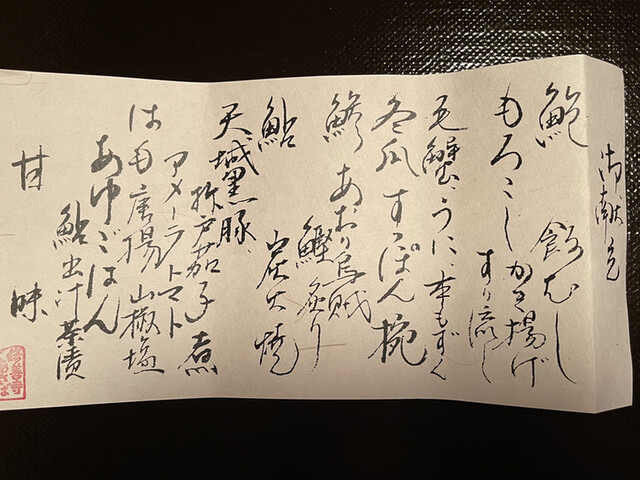 御献立
鮑 飯むし
もろこしかき揚げ
すり流し
毛蟹、うに、本もずく
冬瓜すっぽん椀
鯵 あおり烏賊
鰹炙り
鮎 炭火焼
天城黒豚、
弥戸茄子煮
アメーラトマト
はも唐揚 山椒塩
あゆごはん
鮎出汁茶漬
甘味